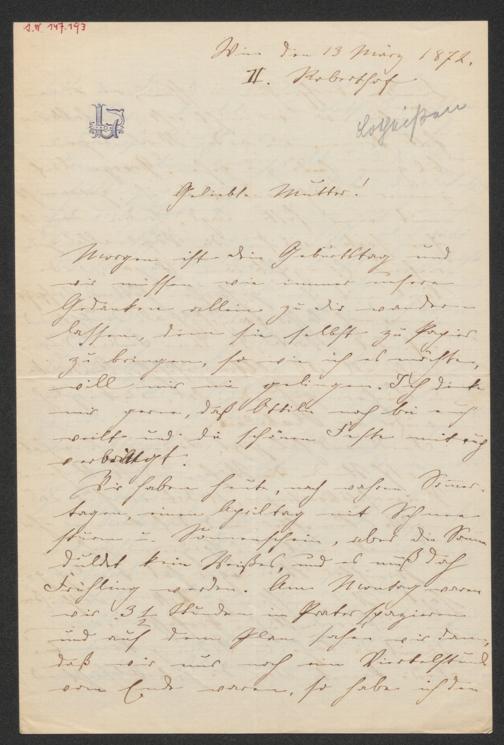 S.N. 147.193
Wien den 13 März 1872.
II. Roberthof
Lotheißen
Geliebte Mutter!
Morgen ist dein Geburtstag und
wir müssen wie immer unsere
Gedanken allein zu dir wandern
lassen, denn sie selbst zu Papier
zu bringen, so wie ich es möchte,
will mir nie gelingen. Ich denke
mir gerne, daß Ottilie noch bei euch
weilt und die schönen Feste mit euch
verbringt.
Wir haben heute, nach wahren Sommer-
tagen, einen Apriltag mit Schnee-
sturm u Sonnenschein, aber die Sonne
duldet kein Weißes, und es muß doch
Frühling werden. Am Montag waren
wir 3 1/2 Stunden im Prater spazieren
und auf dem Plan sahen wir dann,
daß wir nur noch eine Viertelstunde
vom Ende waren, so habe ich den